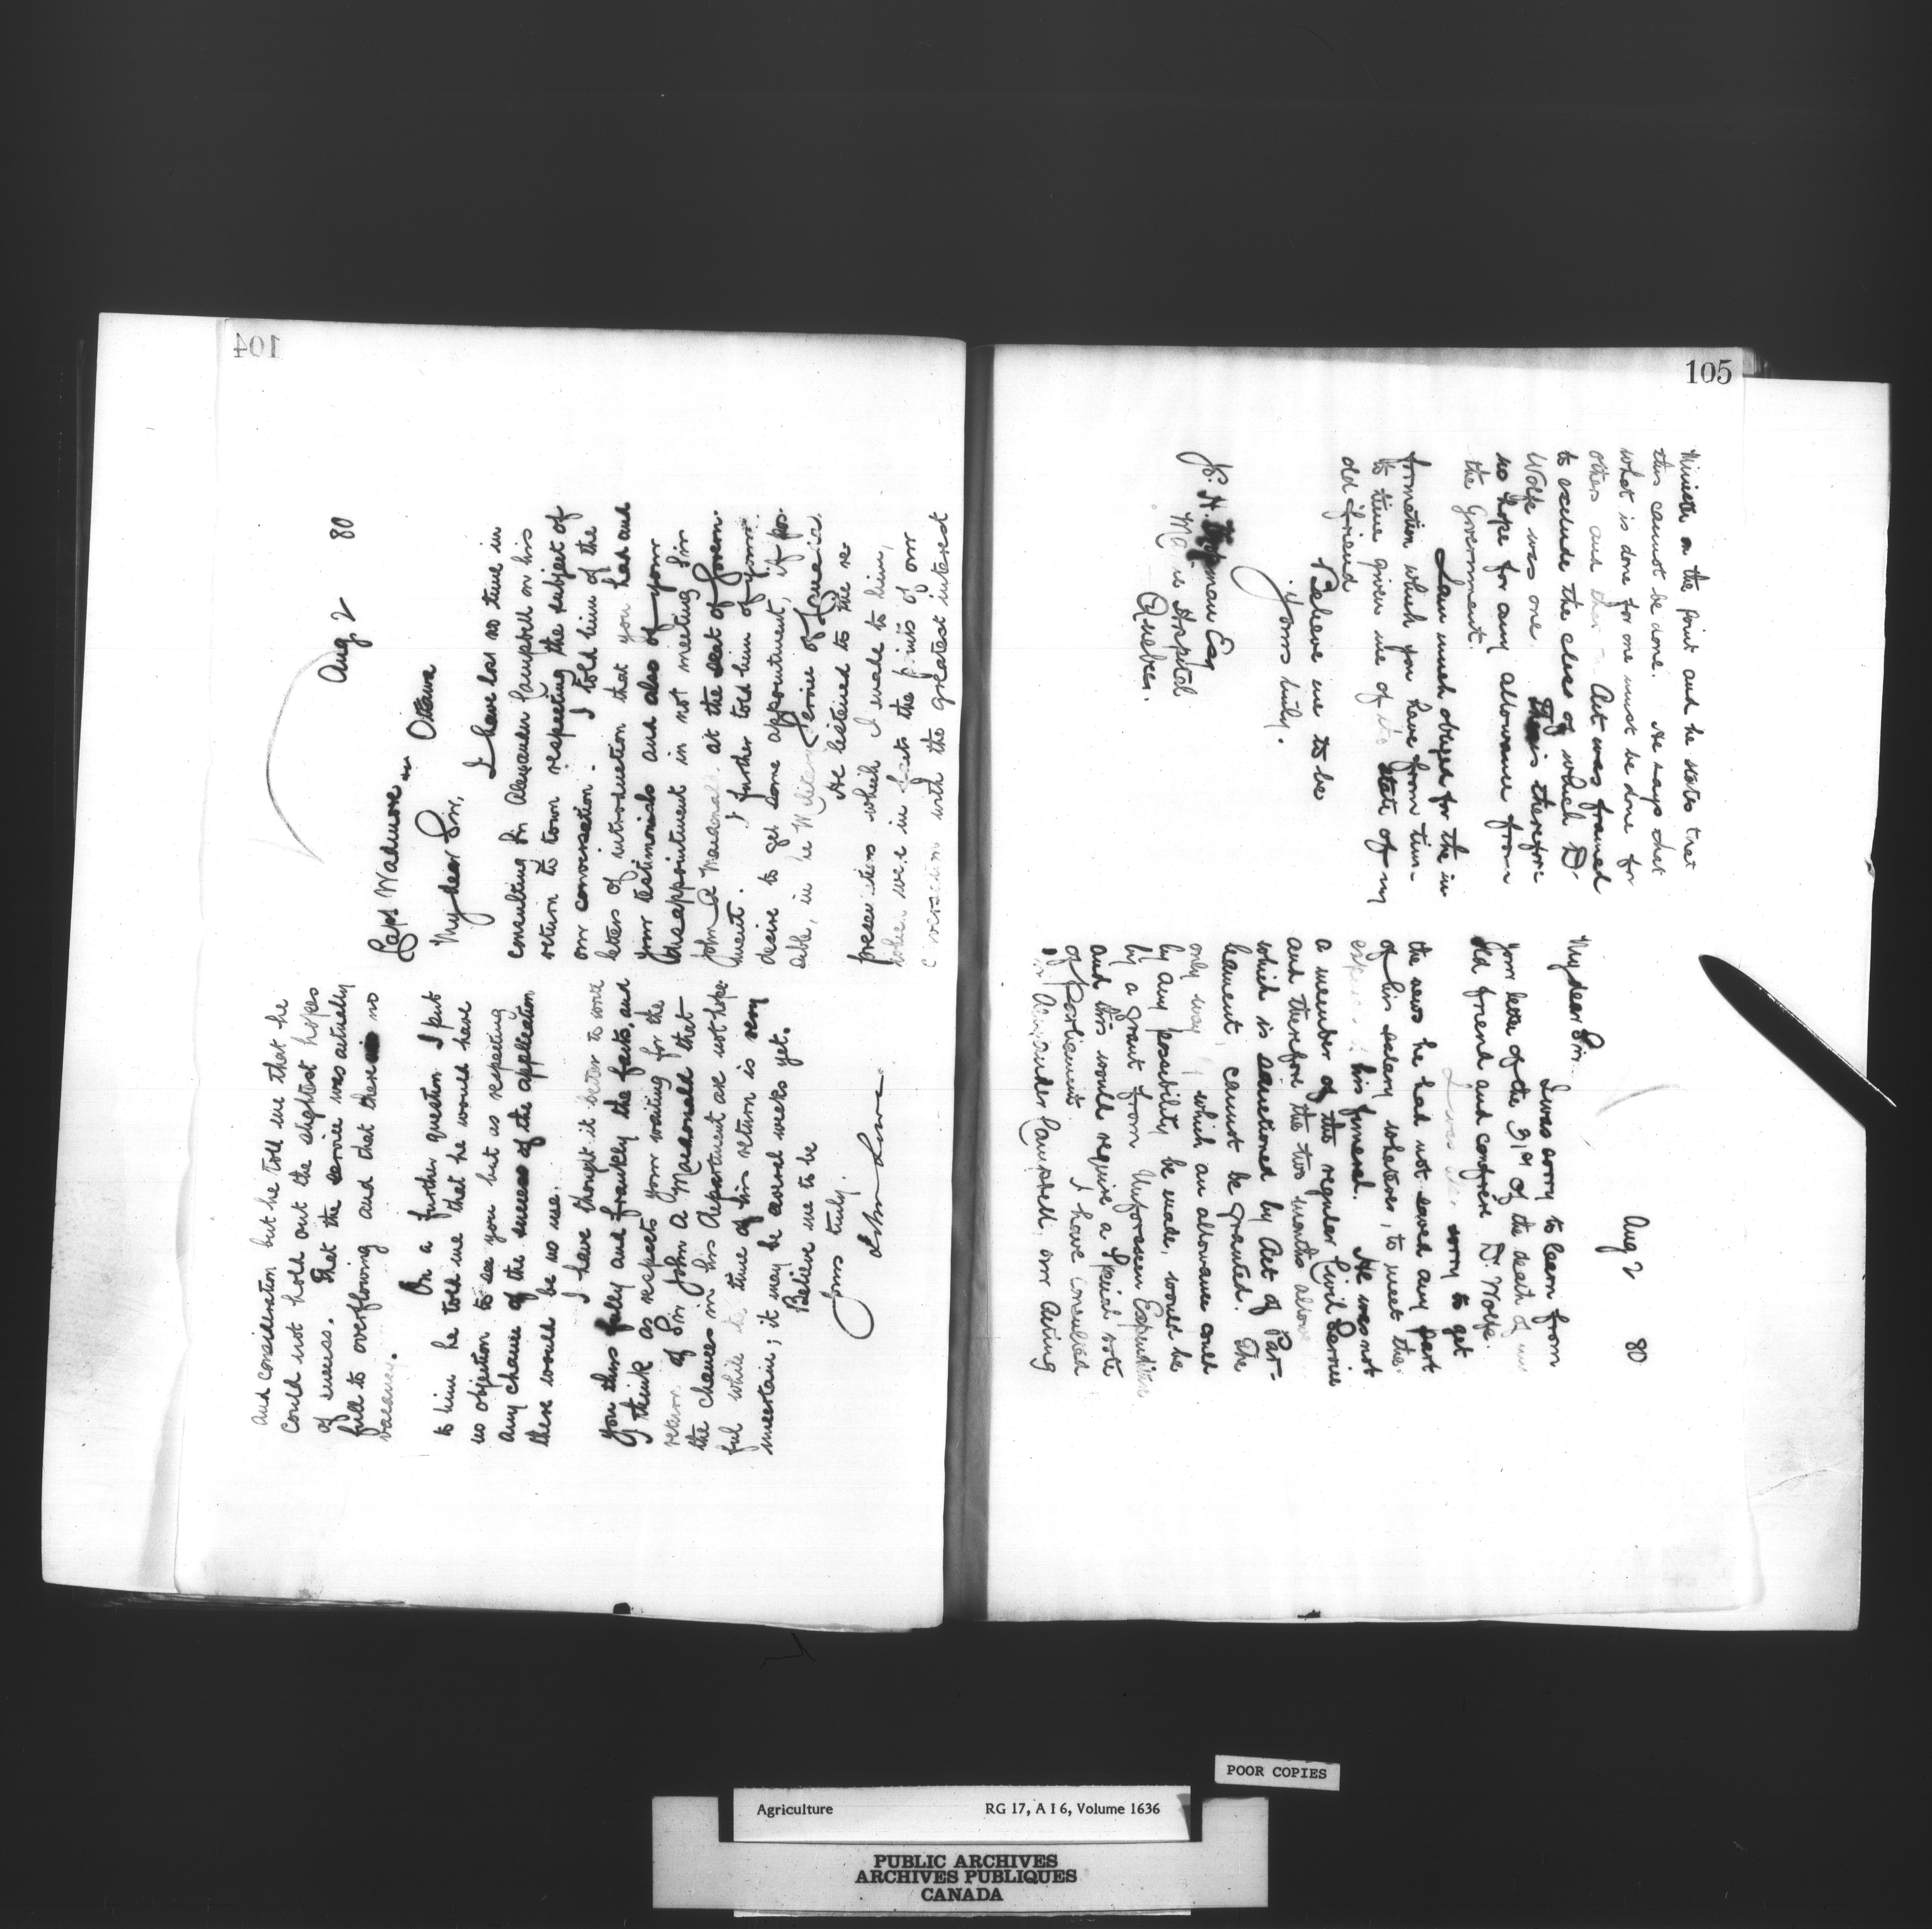 104
Aug. 2 80
Capt Wadmore
Ottawa
My dear Sir,
I have lost no time in
consulting Sir Alexander Campbell on his
return to town respecting the subject of
our conversation. I told him of the
letters of introduction that you had and
your testimonials and also of your
disappointment in not meeting Sir
John A Macdonald at the seat of Govern-
ment. I further told him of your
desire to get some appointment, if pos-
sible, in the Military Service of
He listened to the re-
presentations which I made to him,
which were in fact the points of our
conversation with the greatest interest
and consideration but he told me that he
could not hold out the slightest hopes
of success. That the service was actually
full to overflowing and that there is no
vacancy.
On a further question I put
to him he told me that he would have
no objection to see you but as respecting
any chance of the success of the application
there would be no use.
I have thought it better to write
you thus fully and frankly the facts, and
I think as respects your waiting for the
return of Sir John A Macdonald that
the chances in his Department are not hope-
ful while the time of his return is very
uncertain; it may be several weeks yet.
Believe me to be
Yours truly.
John Lowe
105
Aug 2 80
My dear Sir.
I was sorry to learn from
your letter of the 31st of the death of my
old friend and confrere Dr. Wolfe.
I was also sorry to get
the news he had not saved any part
of his salary whatever, to meet the
expenses of his funeral. He was not
a member of the regular Civil Service
and therefore the two months allowance
which is sanctioned by Act of Par-
liament cannot be granted. The
only way in which an allowance could
by any possibility be made, would be
by a grant from Unforeseen Expenditure
and this would require a Special vote
of Parliament. I have consulted
Sir Alexander Campbell, our Acting
Minister on the point and he states that
this cannot be done. He says that
what is done for one must be done for
others and the Act was framed
to exclude the class of which Dr
Wolfe was one. There is therefore
no hope for any allowance from
the Government.
I am much obliged for the in
formation which you have from time
to time given me of the state of my
old friend
Believe me to be
Yours truly.
Esq
Marine Hospital
Quebec.
POOR COPIES
Agriculture RG 17, A I 6, Volume 1636
PUBLIC ARCHIVES
ARCHIVES PUBLIQUES
CANADA